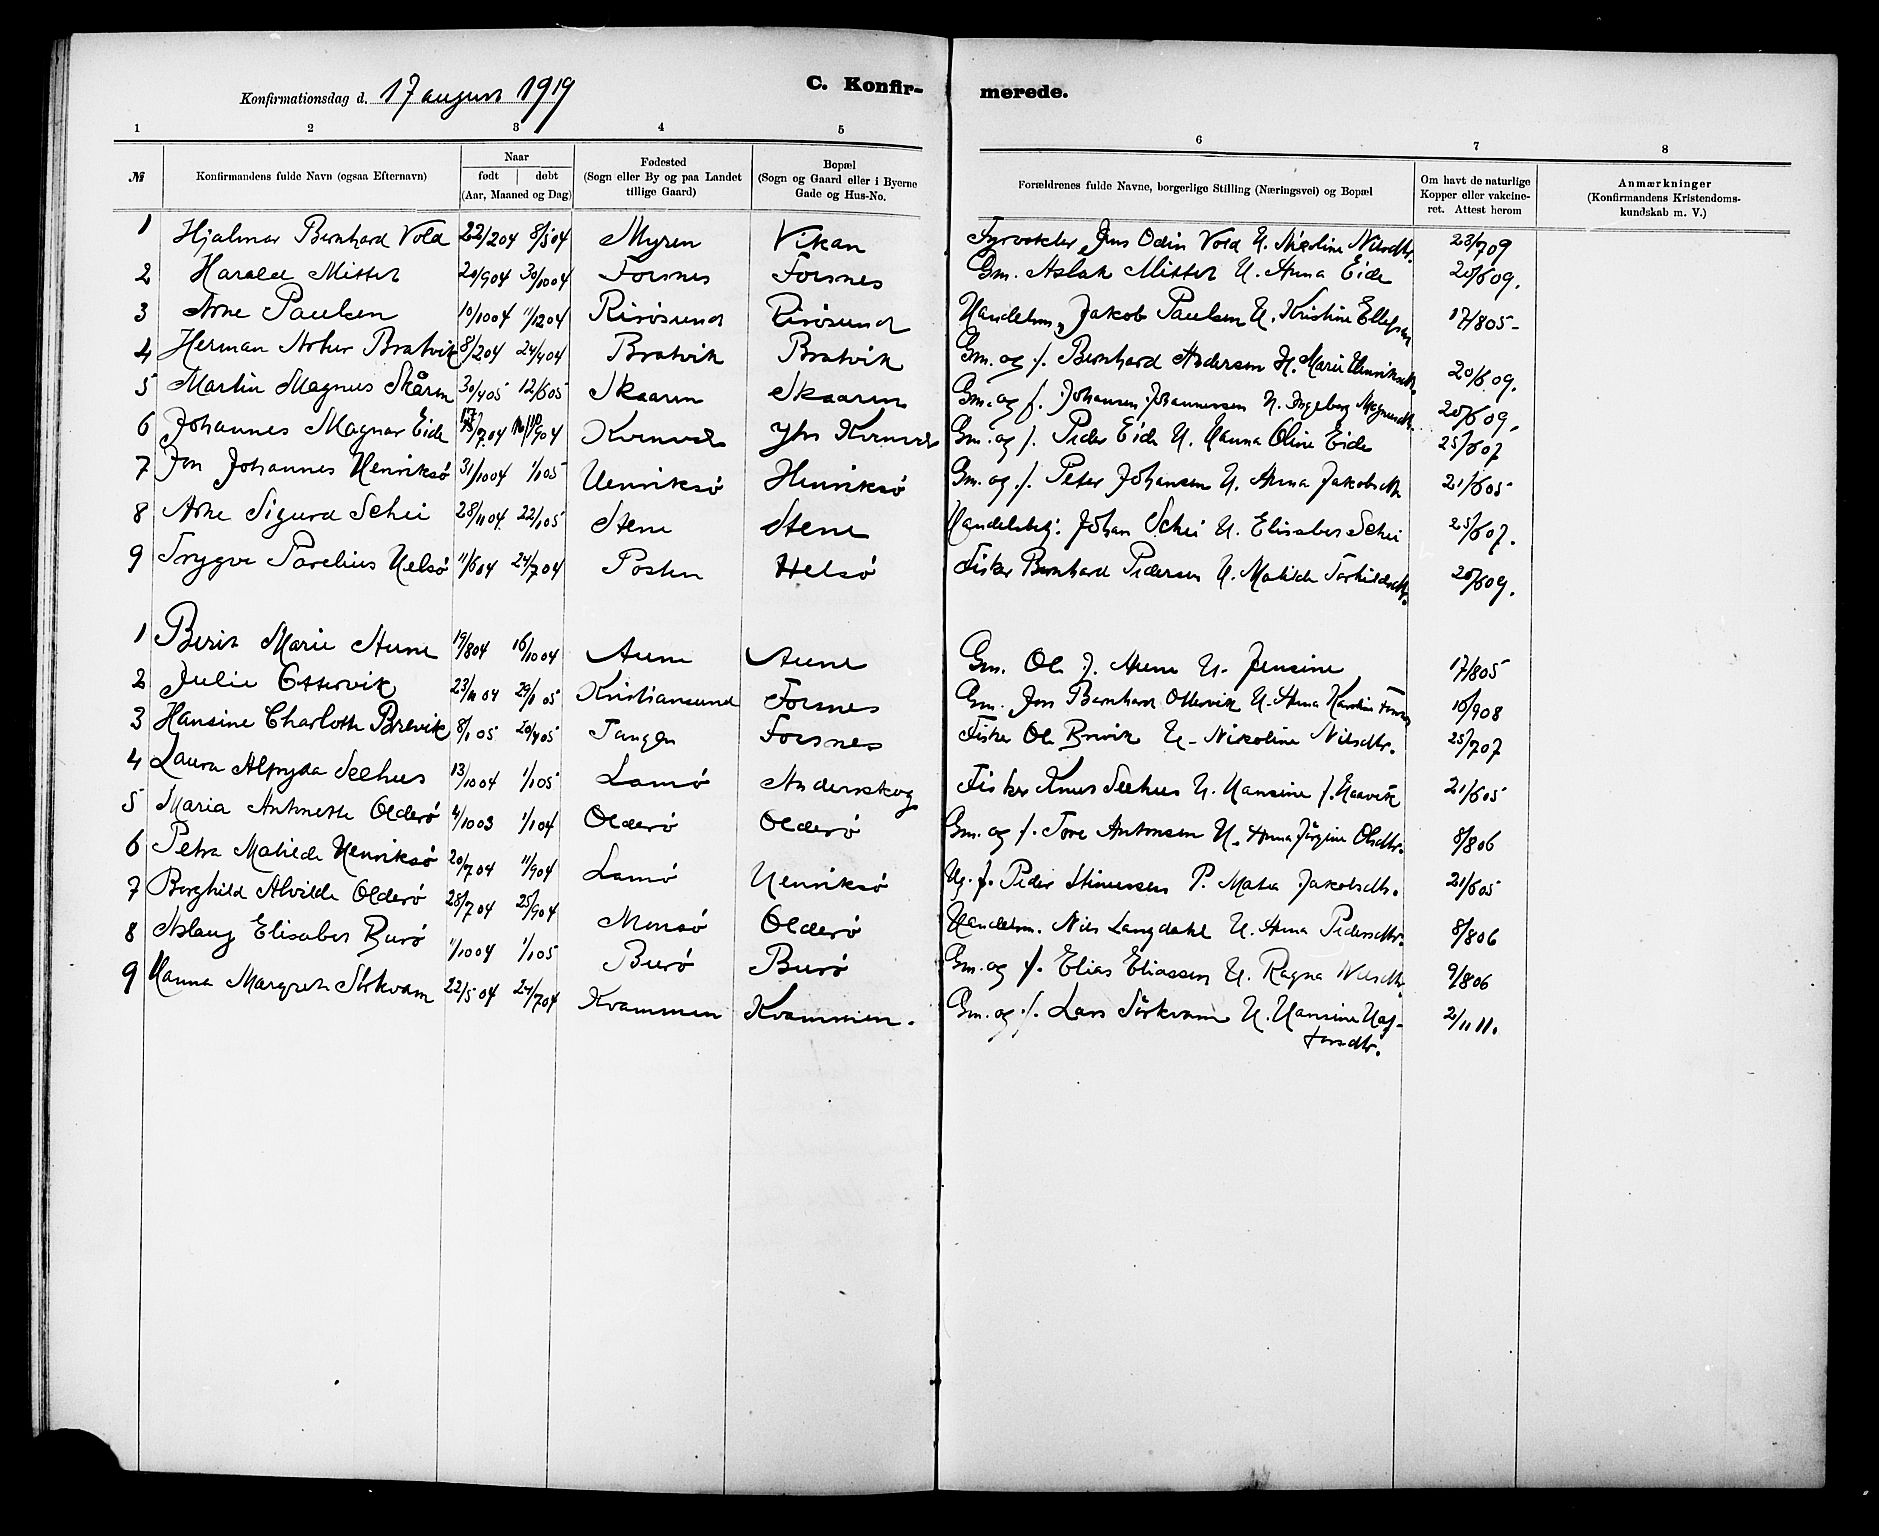 C. Konfirmerede.
Konfirmationsdag d. 17 august 1919
1 2 3 4 5 6 7 8
№ | Konfirmandens fulde Navn (ogsaa Efternavn) | Naar født | døbt (Aar, Maaned og Dag) | Fødested (Sogn eller By og paa Landet tillige Gaard) | Bopæl (Sogn og Gaard eller i Byerne Gade og Hus-No. | Forældrenes fulde Navne, borgerlige Stilling (Næringsvei) og Bopæl | Om havt de naturlige Kopper eller vakcineret. Attest herom | Anmærkninger (Konfirmandens Kristendomskundskab m. V.)
1 Hjalmar Bernhard Vold 22/2 04 8/5 04 Myren Vikan Fyrvokter Jens Odin Vold H. Nicoline Nilsdtr. 23/7 09
2 Harald Mittet 20/9 04 30/10 04 Forsnes Forsnes Gm. Aslak Mittet H. Anna Eide 20/6 09.
3 Arne Paulsen 10/10 04 11/12 04 Risøsund Risøsund Handelsm. Jakob Paulsen H. Kristine Ellefsen 17/8 05-
4 Herman Artur Bratvik 8/2 04 24/4 04 Bratvik Bratvik Gm. og f. Bernhard Andersen H. Marie Henriksdtr. 20/6 09.
5 Martin Magnus Skåren 30/4 05 12/6 05 Skaaren Skaaren Gm. og f. Johansen Johannessen H. Ingeborg Magnusdtr. 20/6 09.
6 Johannes Magnar Eide /7 04 /9 04 Kvenvær Ytre Kvenvær Gm. og f. Peder Eide H. Hanna Oline Eide 25/6 07
7 Jon Johannes Henriksø 31/10 04 1/1 05 Henriksø Henriksø Gm. og f. Peter Johansen H. Anna Jakobsdtr. 21/6 05
8 Arne Sigurd Schei 28/11 04. 22/1 05 Stene Stene Handelsbetj. Johan Schei H. Elisabet Schei 25/6 07.
9 Trygve Parelius Helsø 11/6 04 24/7 04 Posten Helsø Fisker Bernhard Pedersen H. Matilde Torkildsdtr. 20/6 09.
1 Berit Marie Aune 19/8 04 16/10 04 Aune Aune Gm. Ole J. Aune H. Jensine 17/8 05
2 Julie Ottervik 23/11 04 29/1 05 Kristiansund Forsnes Gm. Jon Bernhard Ottervik H. Anna Karoline 16/9 08
3 Hansine Charlotte Brevik 8/1 05 20/4 05 Tangen Forsnes Fisker Ole Brevik H. Nikoline Nilsdtr. 25/7 07
4 Laura Alfryda Seehus 13/10 04 1/1 05 Lamø Anderskog Fisker Knut Seehus H. Hansine f. Haavik 21/6 05
5 Maria Antonette Olderø 4/10 03 1/1 04 Olderø Olderø Gm. og f. Tore Antonsen H. Anna Jørgine Olsdtr. 8/8 06
6 Petra Matilde Henriksø 20/7 04 11/9 04 Lamø Henriksø Ug. f. Peder Simensen P. Matea Jakobsdtr. 21/6 05
7 Borghild Alvilde Olderø 28/7 04 25/9 04 Monsø Olderø Handelsm. Nils Langdahl H. Anna Pedersdtr. 8/8 06
8 Aslaug Elisabet Burø 1/10 04 1/1 05 Burø Burø Gm. og f. Elias Eliassen H. Ragna Nilsdtr. 9/8 06
9 Hanna Margrete Størkvam 22/5 04 24/7 04 Kvammen Kvammen. Gm. og f. Lars Størkvam H. Hansine Haf-
torsdtr. 2/11 11.